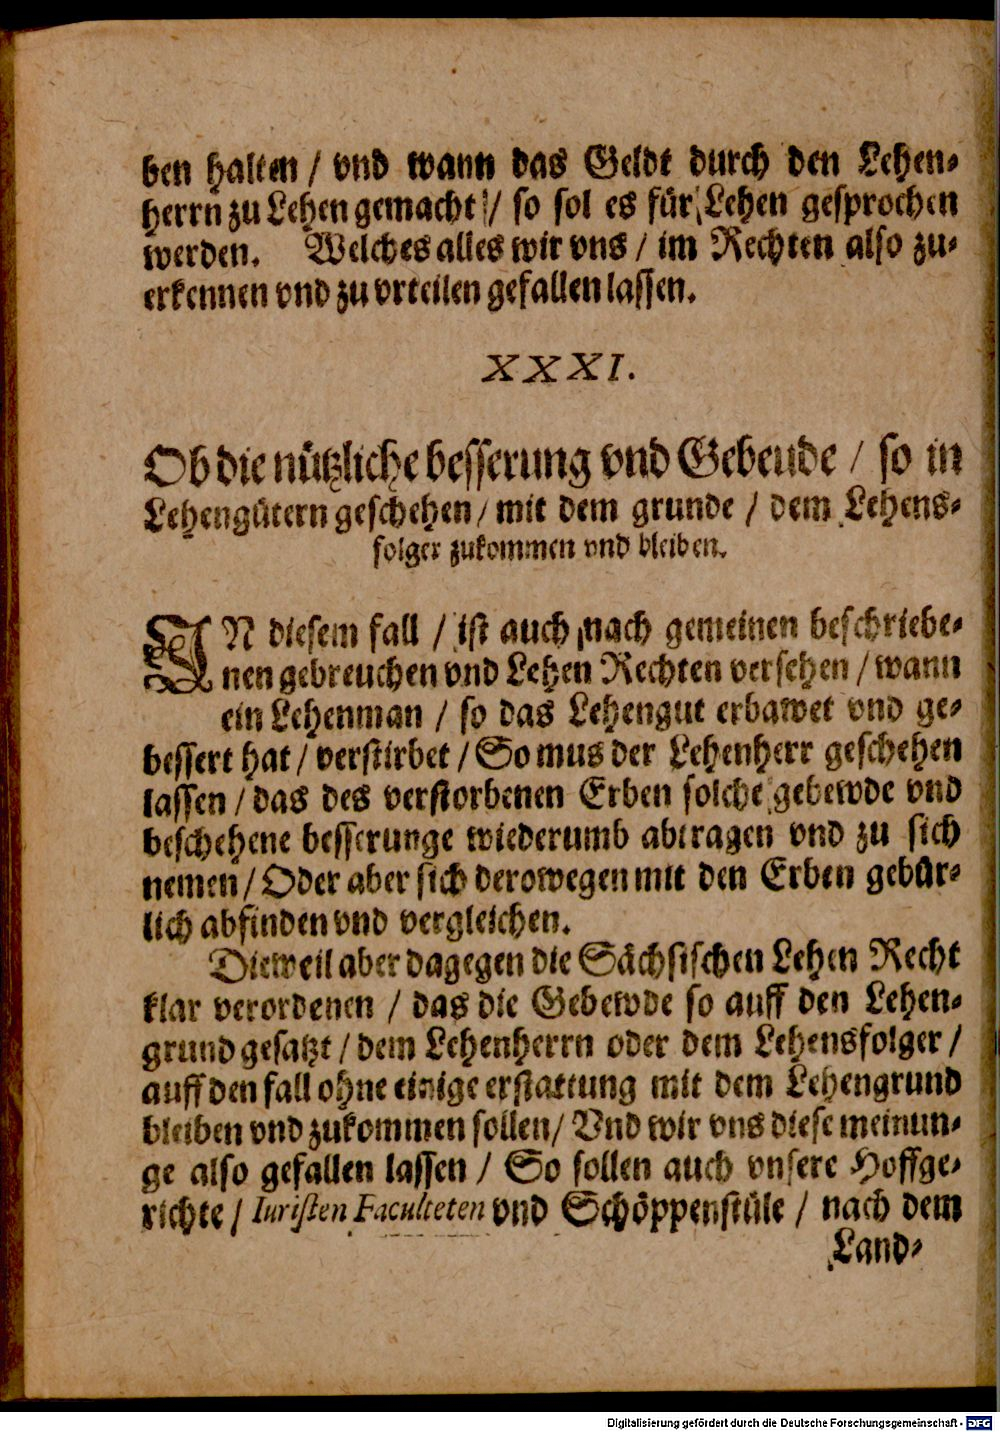 ben halten / vnd wann das Geldt durch den Lehen-
herrn zu Lehen gemacht / so sol es für Lehen gesprochen
werden. Welches alles wir vns / im Rechten also zu-
erkennen vnd zu vrteilen gefallen lassen.
XXXI.
Ob die nützliche besserung vnd Gebeude / so in
Lehengütern geschehen / mit dem grunde / dem Lehens-
folger zukommen vnd bleiben.
IN diesem fall / ist auch nach gemeinen beschriebe-
nen gebreuchen vnd Lehen Rechten versehen / wann
ein Lehenman / so das Lehengut erbawet vnd ge-
bessert hat / verstirbet / So mus der Lehenherr geschehen
lassen / das des verstorbenen Erben solche gebewde vnd
beschehene besserunge wiederumb abtragen vnd zu sich
nemen / Oder aber sich derowegen mit den Erben gebür-
lich abfinden vnd vergleichen.
Dieweil aber dagegen die Sächsischen Lehen Recht
klar verordenen / das die Gebewde so auff den Lehen-
grund gesatzt / dem Lehenherrn oder dem Lehensfolger /
auff den fall ohne einige erstattung mit dem Lehengrund
bleiben vnd zukommen sollen / Vnd wir vns diese meinun-
ge also gefallen lassen / So sollen auch vnsere Hoffge-
richte / Iuristen Faculteten vnd Schöppenstüle / nach dem
Land-
Digitalisierung gefördert durch die Deutsche Forschungsgemeinschaft - DFG